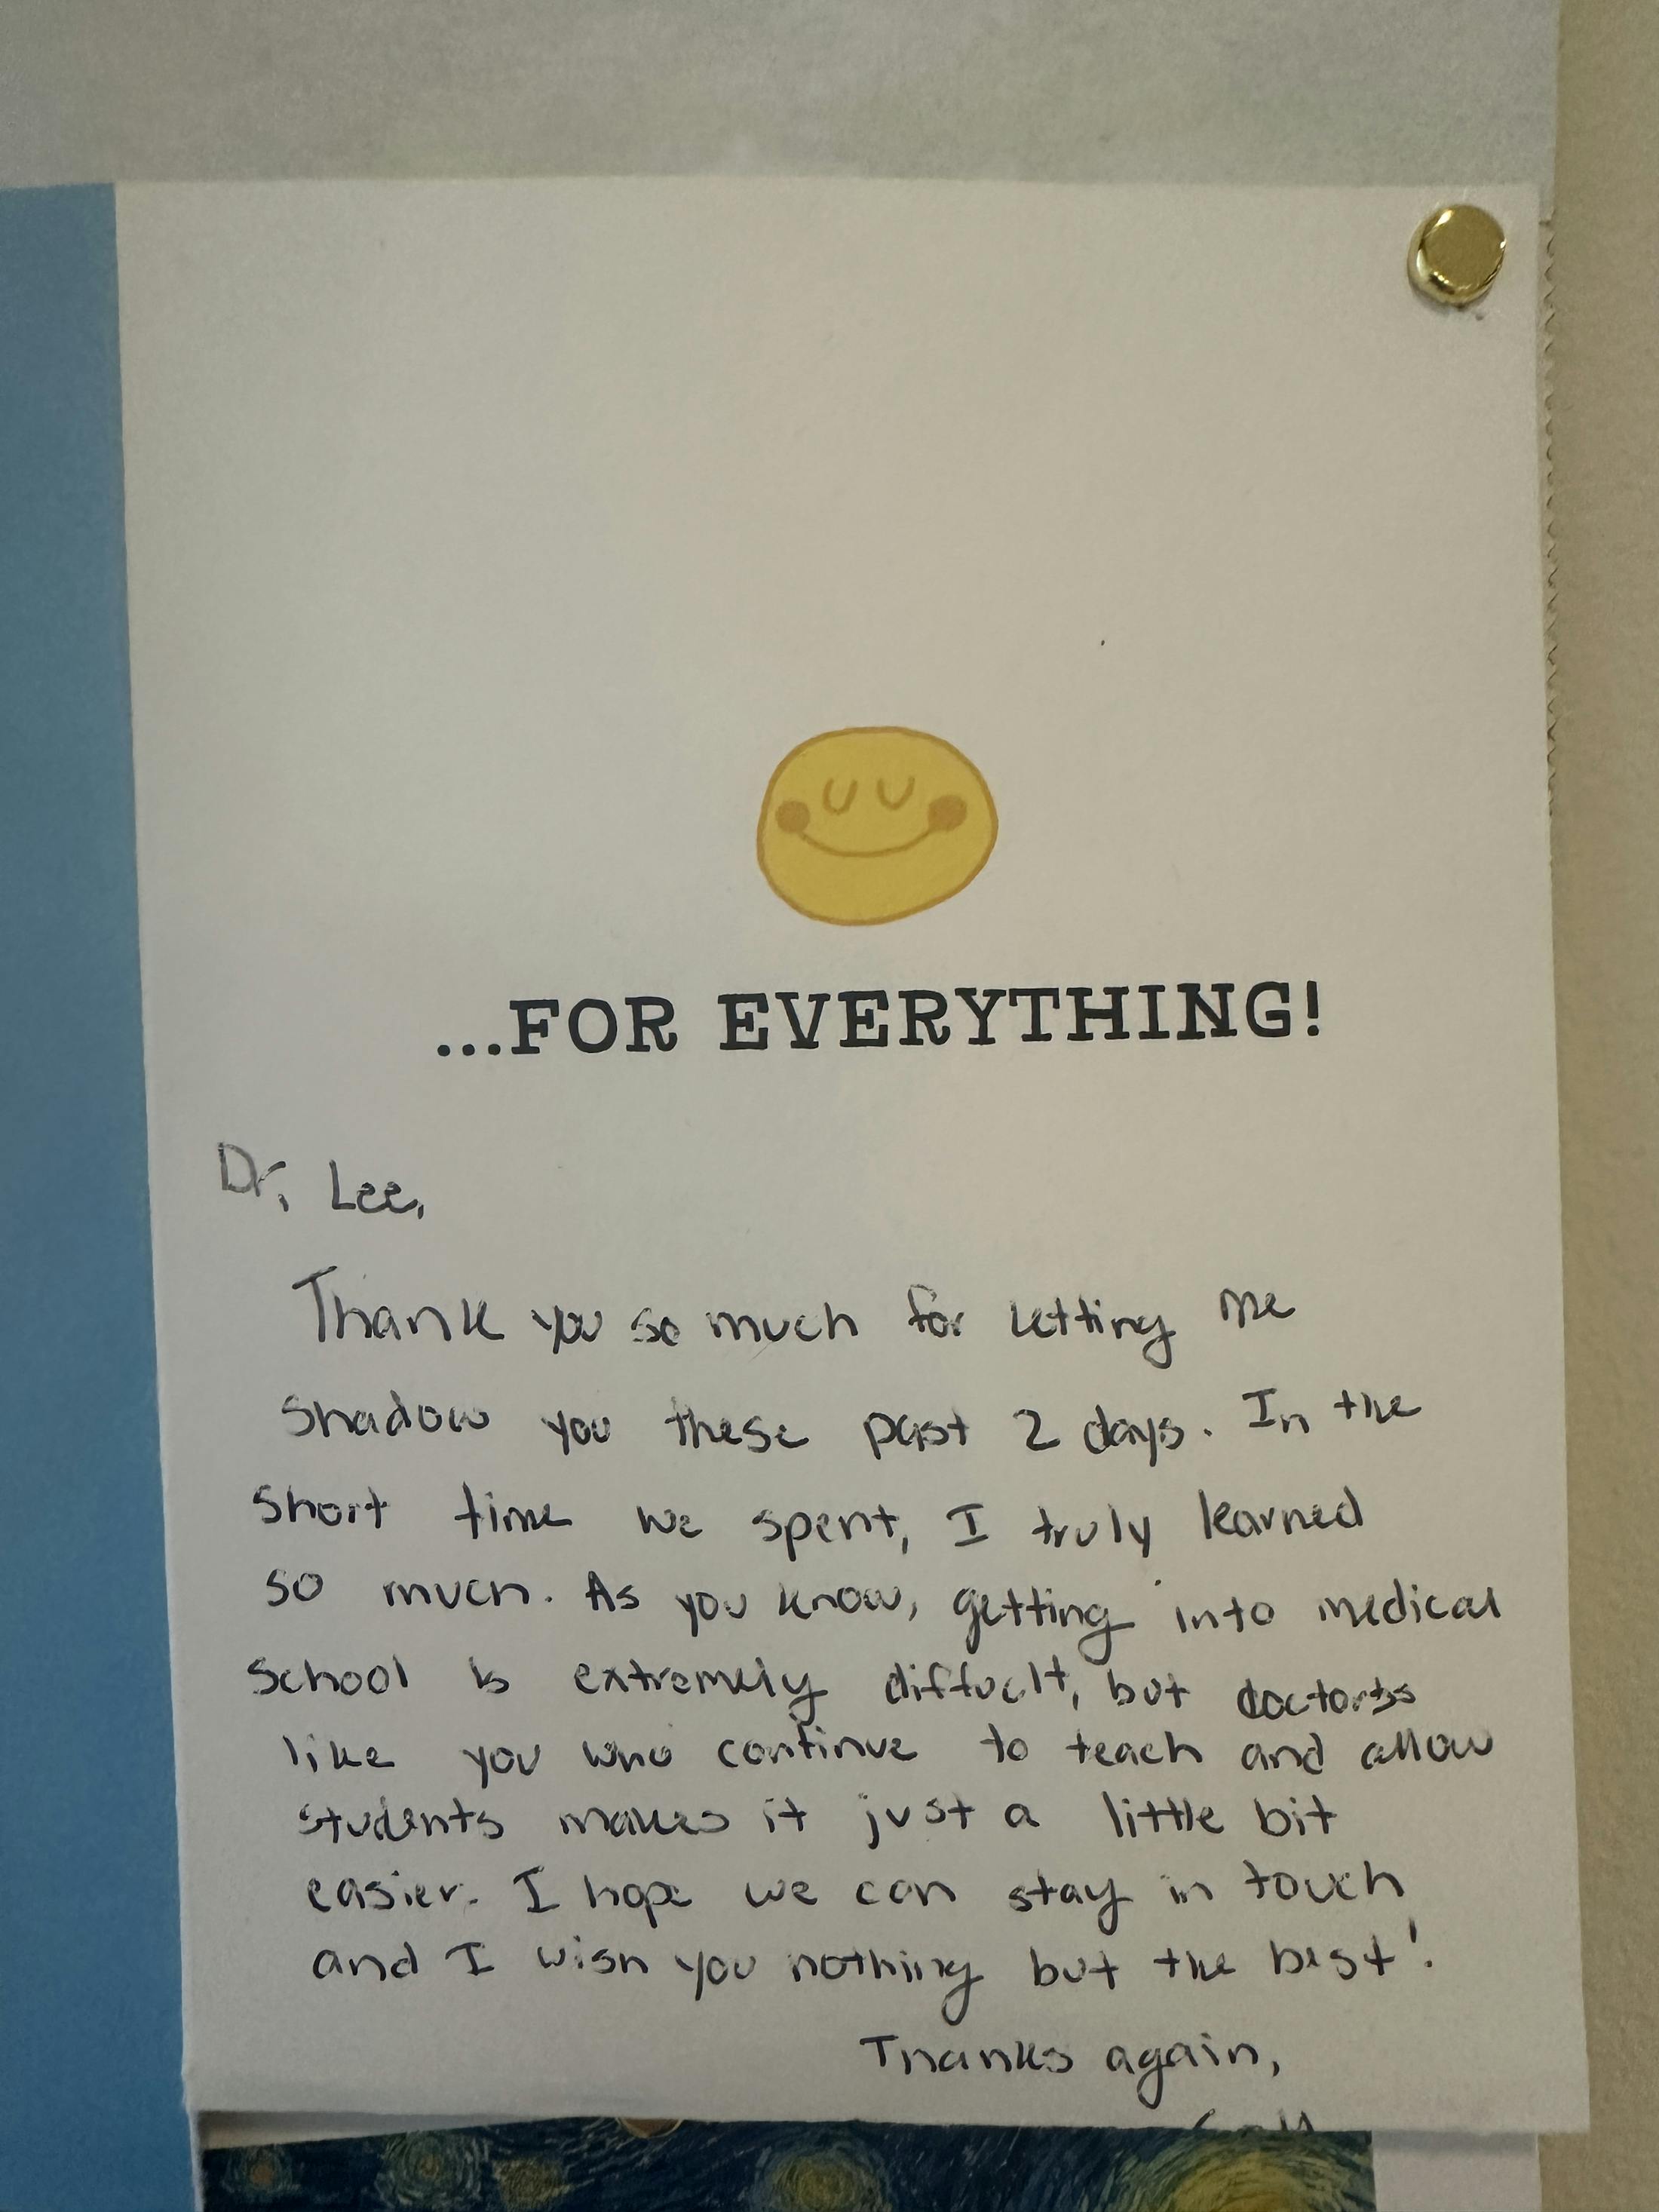 ...FOR EVERYTHING!
Dr. Lee,
Thank you so much for letting me
shadow you these past 2 days. In the
short time we spent, I truly learned
so much. As you know, getting into medical
school is extremely diffuclt, but doctorss
like you who continue to teach and allow
students makes it just a little bit
easier. I hope we can stay in touch
and I wish you nothing but the best!
Thanks again,